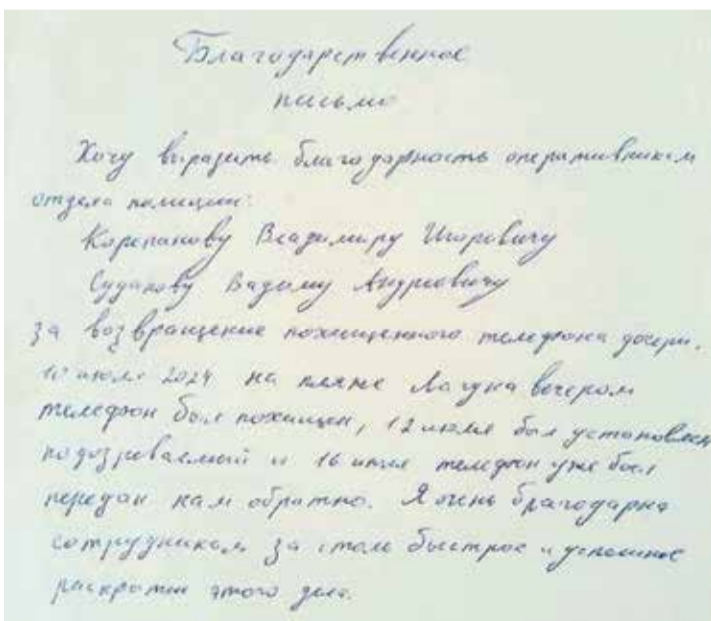 Благодарственное
письмо
Хочу выразить благодарность оперативникам
отдела полиции:
Корепанову Владимиру Игоревичу
Судакову Вадиму Андреевичу
за возвращение похищенного телефона дочери.
10 июля 2024 на пляже Лагуна вечером
телефон был похищен, 12 июля был установлен
подозреваемый и 16 июля телефон уже был
передан нам обратно. Я очень благодарна
сотрудникам за столь быстрое и успешное
раскрытие этого дела.